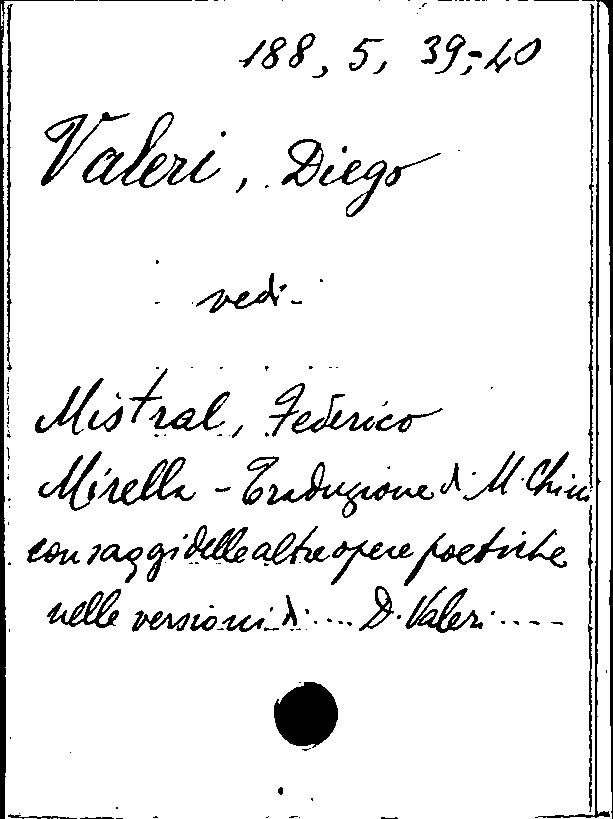 188, 5, 39,-40
Valeri, Diego
vedi
Mistral, Federico
Mirella - Traduzione di M. Chini
con saggi delle altre opere poetiche
nelle versioni di .... D. Valeri ....